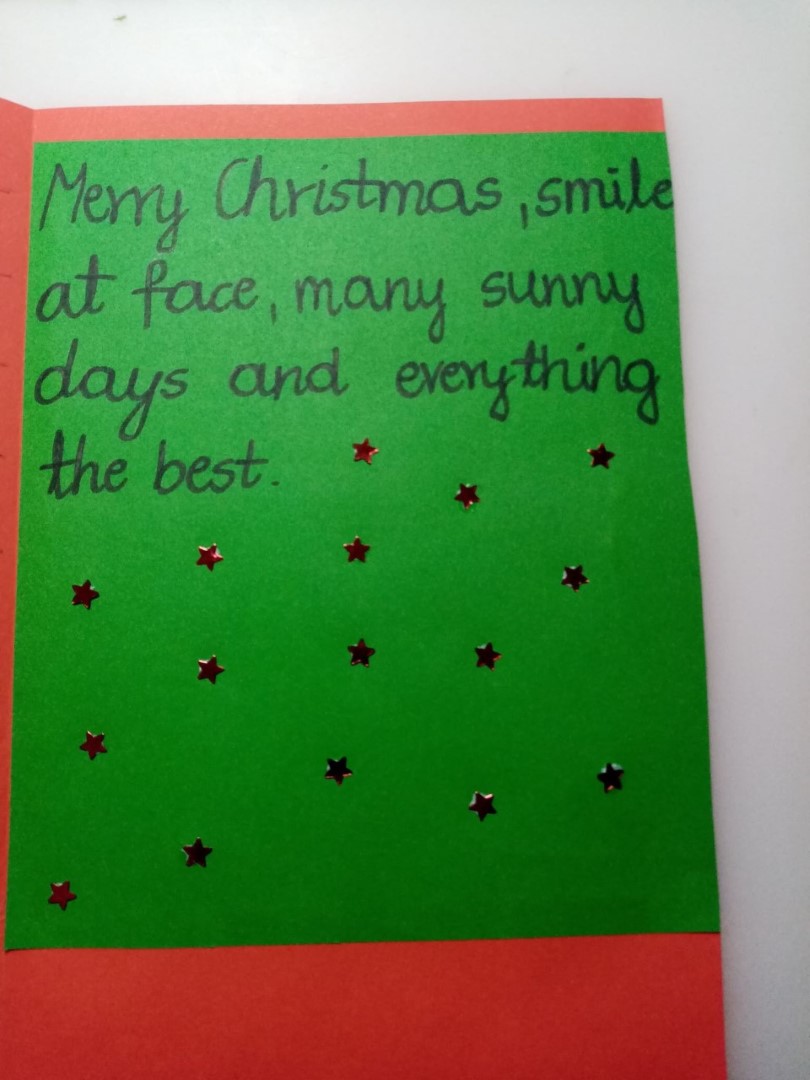 Merry Christmas, smile
at face, many sunny
days and everything
the best.